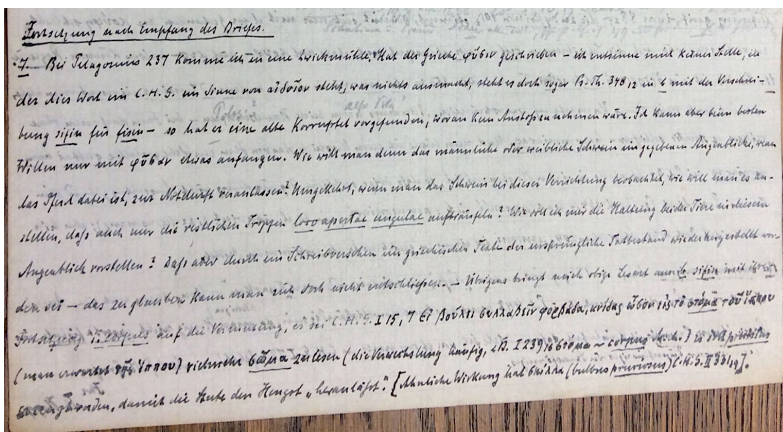 Fortsetzung nach Empfang des Briefes.
7. Bei Pelagonius 237 komme ich in eine Zwickmühle: Hat der Grieche φύσιν geschrieben – ich entsinne mich keiner Stelle, an
der dies Wort im C.H.G. im Sinne von αἰδοῖον steht, was nichts ausmacht, steht es doch sogar 348,12 in b mit der Verschrei-
bung sifin für fisin – so hat er eine alte Korruptel vorgefunden, woran kein Anstoss zu nehmen wäre. Ich kann aber beim besten
Willen nur mit etwas anfangen. Wie will man denn das männliche oder weibliche Schwein im gegebenen Augenblicke, wenn
das Pferd dabei ist, zur Notdurft veranlassen? Umgekehrt, wenn man das Schwein bei dieser Verrichtung beobachtet, wie will man es an-
stellen, daß auch nur die restlichen Tropfen loco apertae ungulae aufträufeln? Wie soll ich mir die Haltung beider Tiere in diesem
Augenblick vorstellen? Daß aber durch ein Schreibversehen im griechischen Text der ursprüngliche Tatbestand wiederhergestellt wor-
den sei – das zu glauben kann man sich doch nicht entschließen. – Übrigens bringt mich obige Lesart aus b sifin mit der
Fortsetzung auf die Vermutung, es sei C.H.G. I 15, 7 εἰ βούλει συλλαβεῖν φορβάδα, εἰς τὸ στόμα τοῦ ἵππου
(man erwartet τῆς ἵππου) vielmehr σῶμα zu lesen (die Verwechslung häufig, I 239, στόμα ~ corpus
werden, damit die Stute den Hengst „heranläßt“. [Ähnliche Wirkung hat (bulbus) C.H.G. II